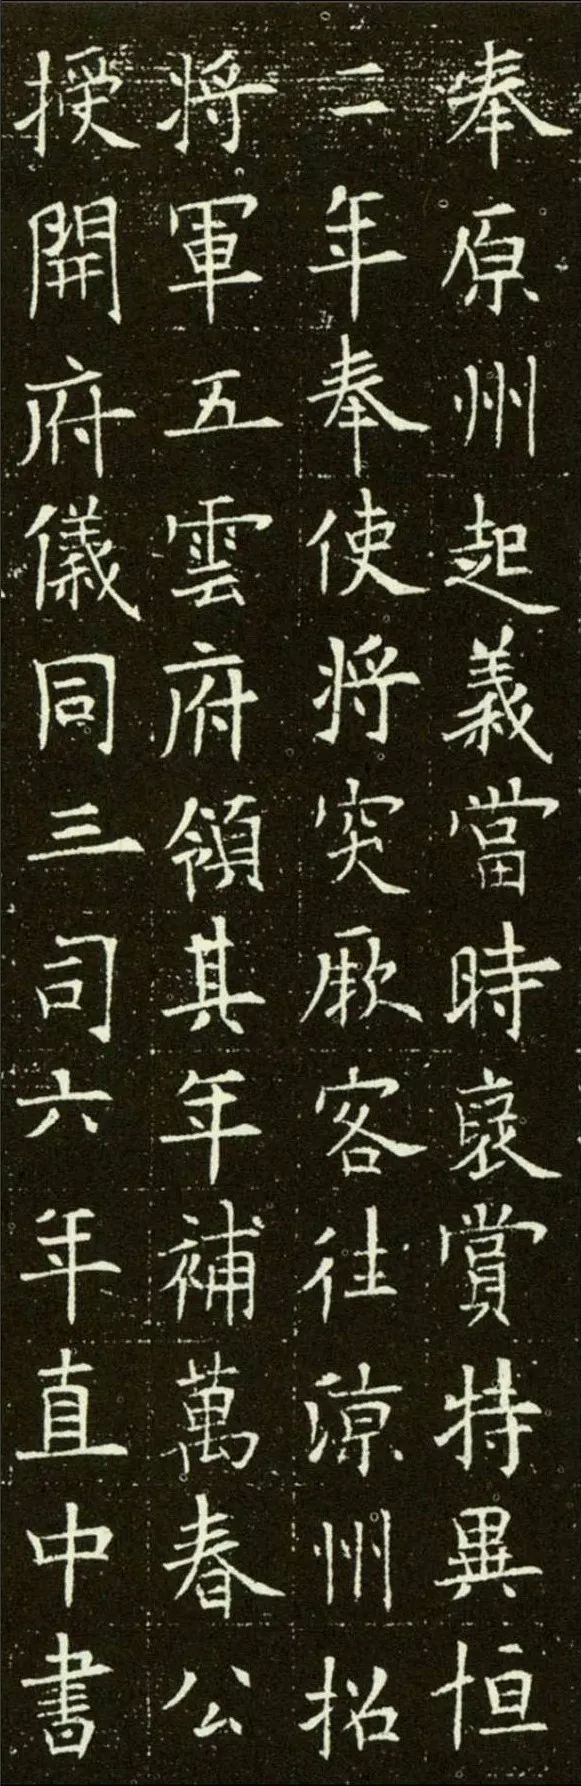 奉原州起義當時褒賞特異恒
二年奉使将突厥客往涼州招
将軍五雲府領其年補萬春公
授開府儀同三司六年直中書